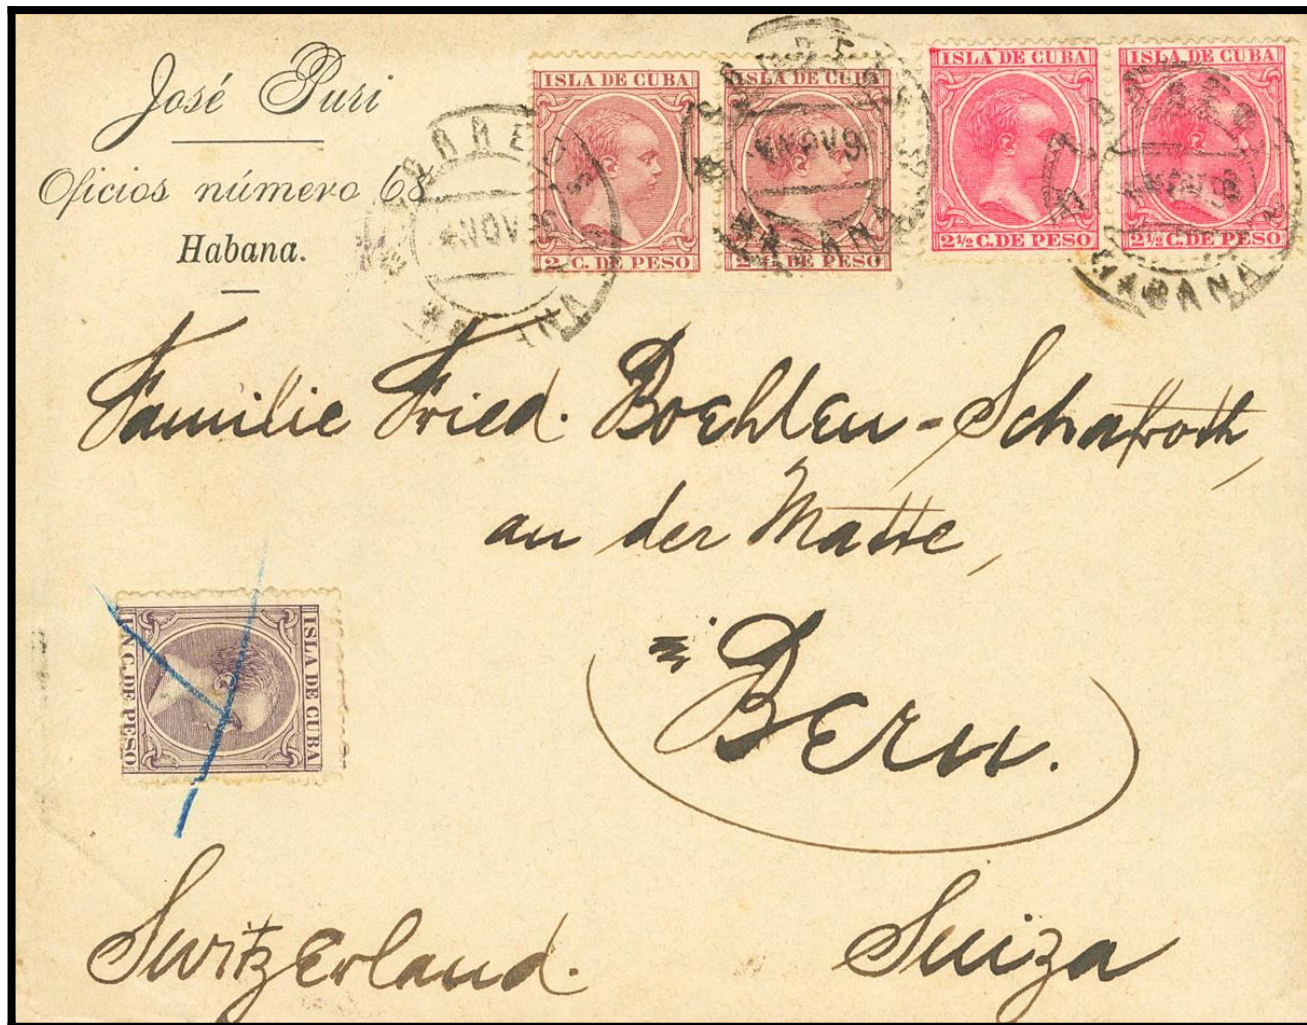 José Puri
Oficios número 68
Habana.
ISLA DE CUBA
2 C. DE PESO
ISLA DE CUBA
DE PESO
ISLA DE CUBA
2½ C. DE PESO
ISLA DE CUBA
2½ C. DE PESO
NOV
NOV
HABANA
HABANA
Familie Fried. Boehlen-Schafroth,
an der Matte,
Bern.
ISLA DE CUBA
UN C. DE PESO
Switzerland.
Suiza